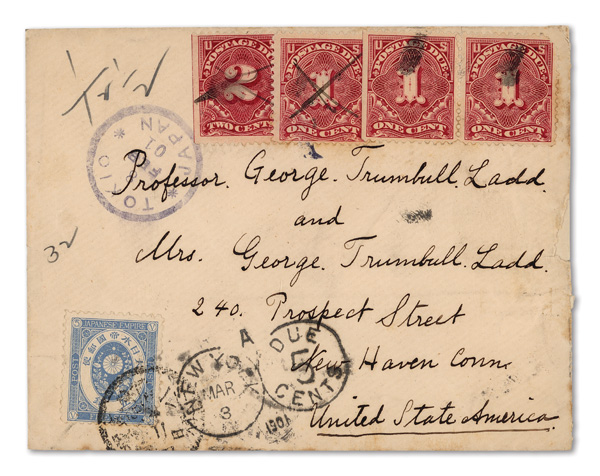 U S
POSTAGE DUE
2
TWO CENTS
U S
POSTAGE DUE
1
ONE CENT
U S
POSTAGE DUE
1
ONE CENT
U S
POSTAGE DUE
1
ONE CENT
TOKIO
JAPAN
01
Professor. George. Trumbull. Ladd.
and
Mrs. George. Trumbull. Ladd.
240. Prospect Street
New Haven Conn.
United State America.
32
JAPANESE EMPIRE
大日本帝國郵便
POST
NEW YORK
MAR
8
A
DUE
5
CENTS
1901